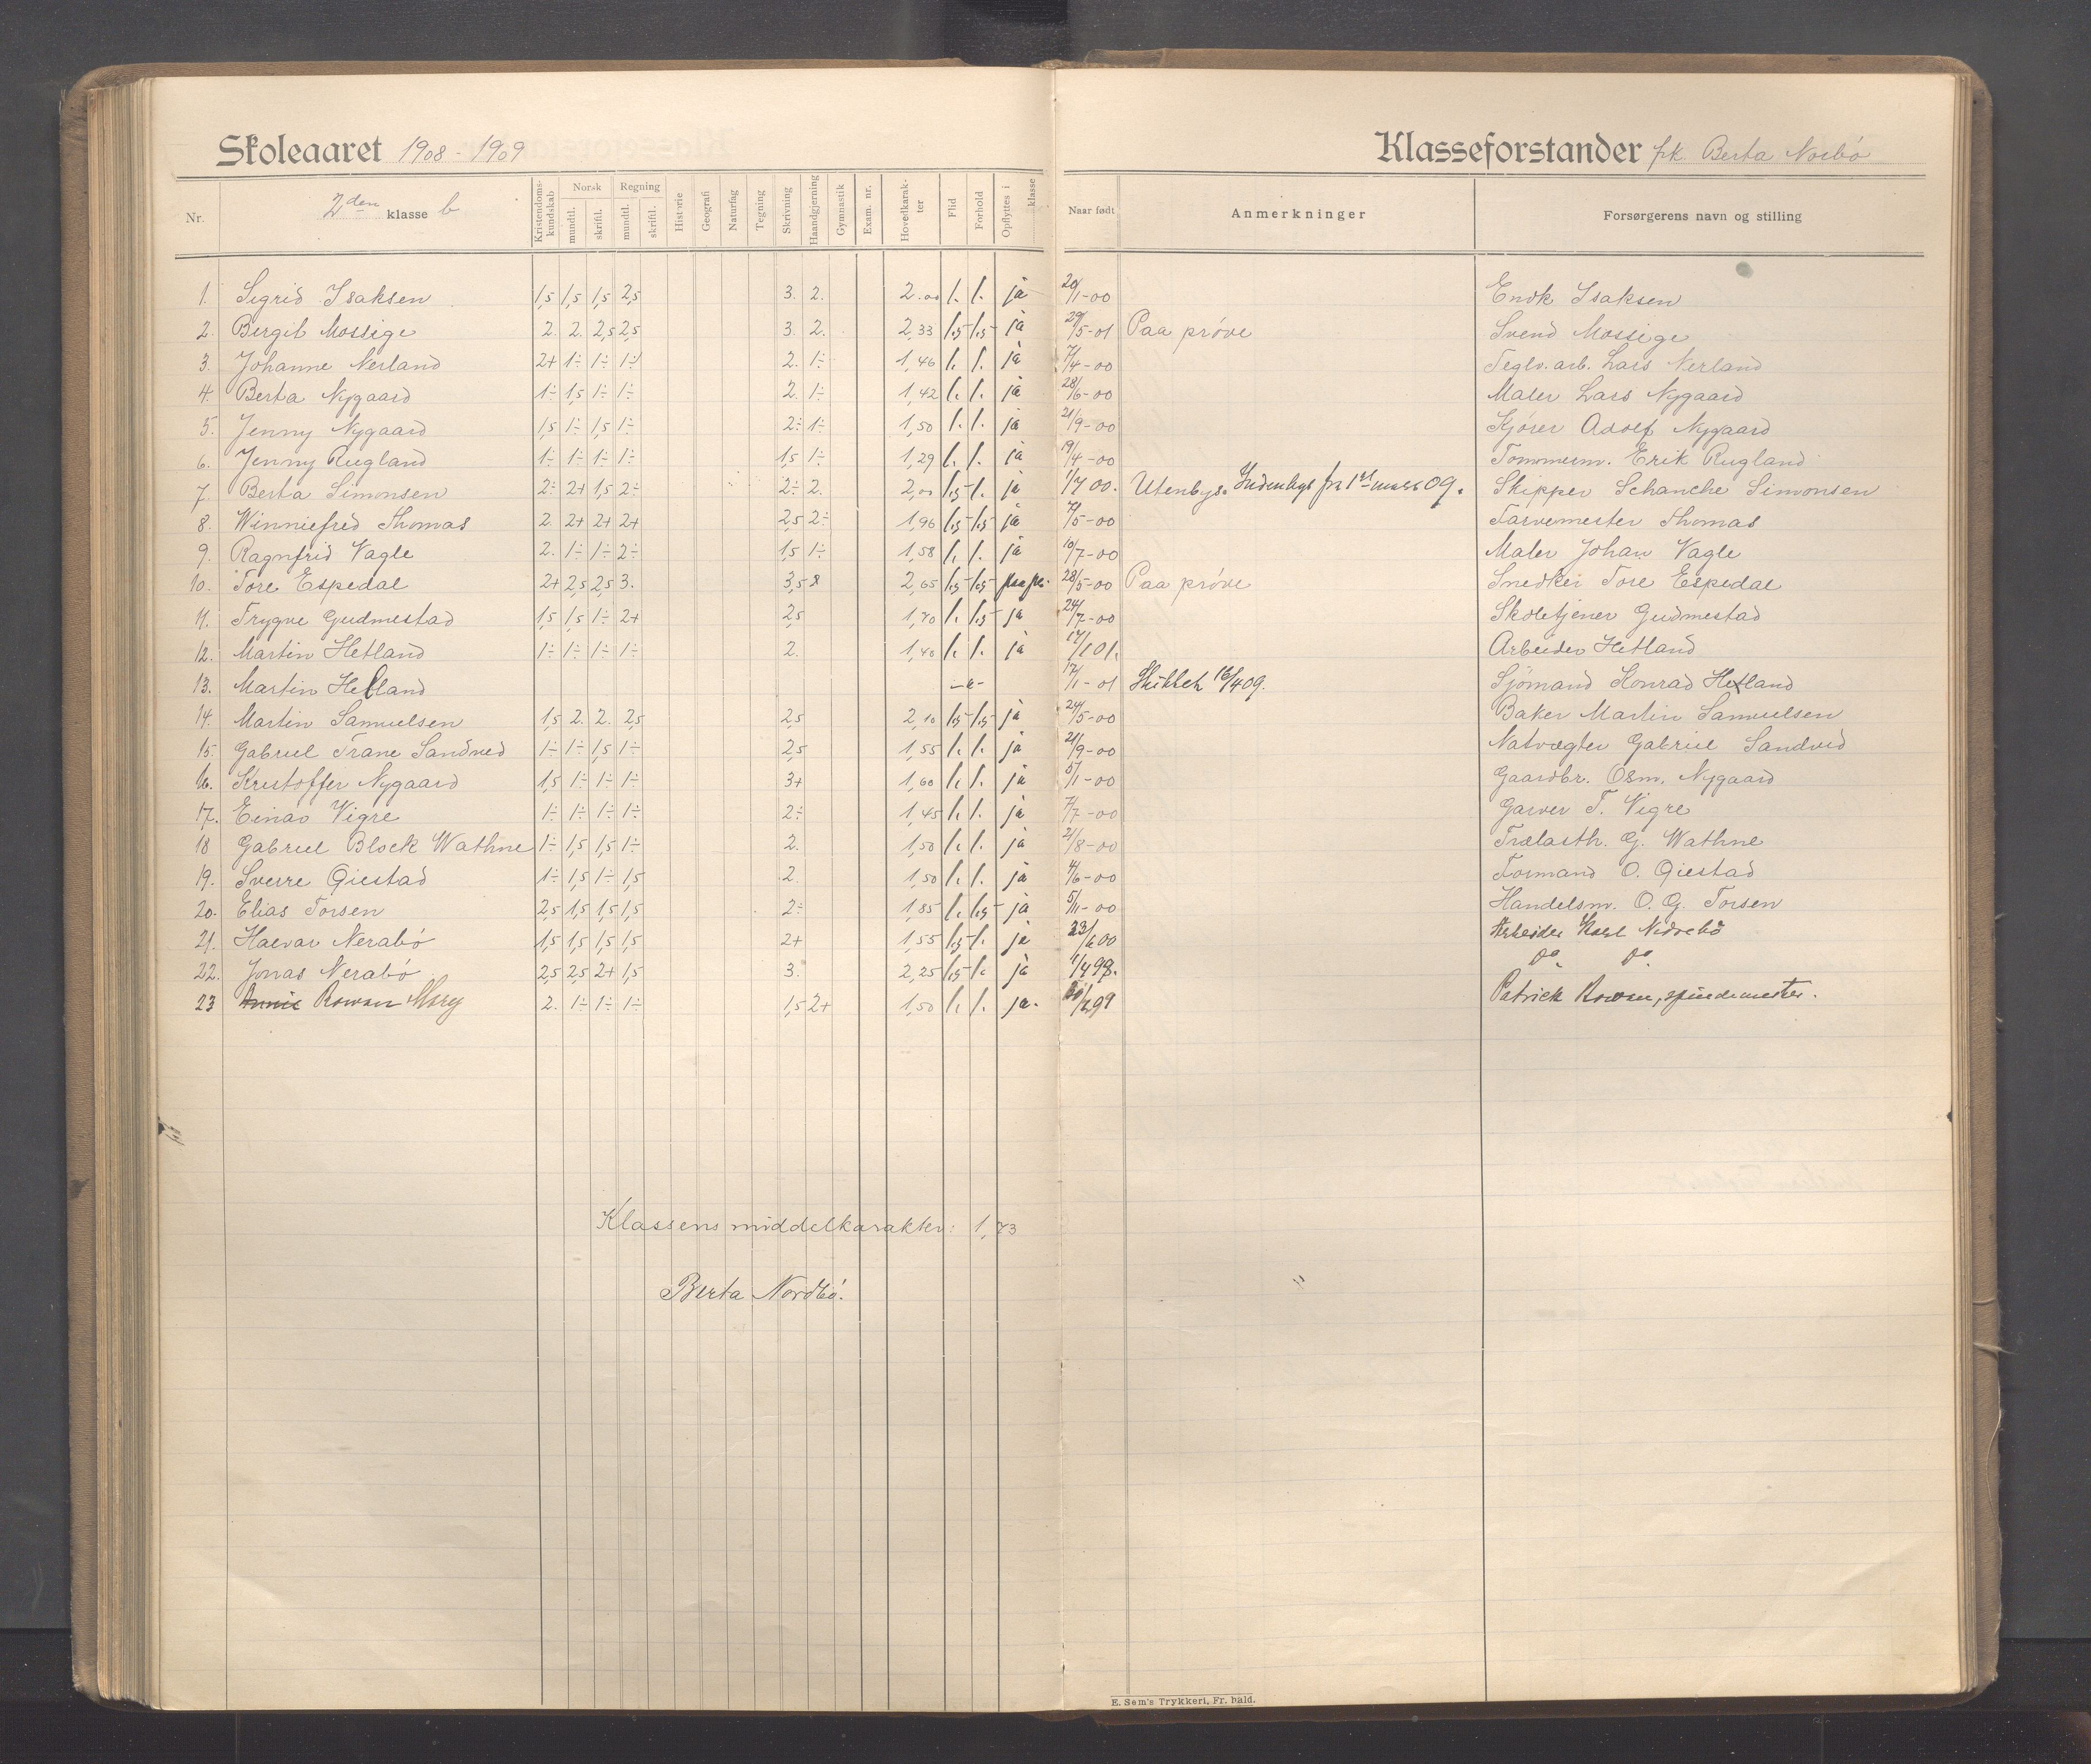 Skoleaaret 1908-1909
Klasseforstander frk. Berta Norbø
Nr. 2den klasse b Kristendoms-kundskab Norsk mundtl. skriftl. Regning mundtl. skriftl. Historie Geografi Naturfag Tegning Skrivning Haandgjerning Gymnastik Exam. nr. Hovedkarakter Flid Forhold Opflyttes i klasse Naar født Anmerkninger Forsørgerens navn og stilling
1. Sigrid Isaksen 1,5 1,5 1,5 2,5 3. 2. 2.00 1. 1. ja 20/1-00 Endk Isaksen
2. Bergit Mossige 2. 2. 2,5 2,5 3. 2. 2,33 1,5 1,5 ja 29/5-01 Paa prøve Svend Mossige
3. Johanne Nerland 2+ 1÷ 1÷ 1÷ 2. 1÷ 1,46 1. 1. ja 7/4-00 Teglv. arb. Lars Nerland
4. Berta Nygaard 1÷ 1,5 1÷ 1÷ 2. 1÷ 1,42 1. 1. ja 28/6-00 Maler Lars Nygaard
5. Jenny Nygaard 1,5 1÷ 1,5 1÷ 2÷ 1÷ 1,50 1. 1. ja 21/9-00 Kjører Adolf Nygaard
6. Jenny Rugland 1÷ 1÷ 1÷ 1÷ 1,5 1÷ 1,29 1. 1. ja 19/4-00 Tømmerm. Erik Rugland
7. Berta Simonsen 2÷ 2+ 1,5 2÷ 2÷ 2. 2,00 1,5 1. ja 1/7 00. Utenbys. Indenbys fra 1st mars 09. Skipper Schanche Simonsen
8. Winniefred Thomas 2. 2+ 2+ 2+ 2,5 2÷ 1,96 1,5 1,5 ja 7/5-00 Farvemester Thomas
9. Ragnfrid Vagle 2. 1÷ 1÷ 2÷ 1,5 1÷ 1,58 1. 1. ja 10/7-00 Maler Johan Vagle
10. Tore Espedal 2+ 2,5 2,5 3. 3,5 2,65 1,5 1,5 paa pr. 28/5-00 Paa prøve Snedker Tore Espedal
11. Trygve Gudmestad 1,5 1,5 1÷ 2+ 2,5 1,70 1. 1,5 ja 24/7-00 Skoletjener Gudmestad
12. Martin Hetland 1÷ 1÷ 1÷ 1÷ 2. 1,40 1. 1. ja 17/1 01. Arbeider Hetland
13. Martin Helland -"- 12/1-01 Skiltet 16/4 09. Sjømand Konrad Hetland
14. Martin Samuelsen 1,5 2. 2. 2,5 2,5 2,10 1,5 1,5 ja 24/5-00 Baker Martin Samuelsen
15. Gabriel Trane Sandved 1÷ 1÷ 1,5 1÷ 2,5 1,55 1. 1. ja 21/9-00 Natvægter Gabriel Sandved
16. Kristoffer Nygaard 1,5 1÷ 1÷ 1÷ 3+ 1,60 1. 1. ja 5/1-00 Gaardbr. Osm. Nygaard
17. Einar Vigre 1÷ 1÷ 1÷ 1÷ 2÷ 1,45 1. 1. ja 7/7-00 Garver T. Vigre
18 Gabriel Block Wathne 1÷ 1,5 1,5 1÷ 2. 1,50 1. 1. ja 21/8-00 Trælasth. G. Wathne
19. Sverre Giestad 1÷ 1,5 1÷ 1,5 2. 1,50 1. 1. ja 4/6-00 Formand O. Giestad
20. Elias Torsen 2,5 1,5 1,5 1,5 2÷ 1,85 1. 1,5 ja 5/11-00 Handelsm. O. G. Torsen
21. Halvar Nerabø 1,5 1,5 1,5 1,5 2+ 1,55 1,5 1. ja 23/6 00 Arbeider Karl Nedrebø
22. Jonas Nerabø 2,5 2,5 2+ 1,5 3. 2,25 1,5 1. ja 1/4 98. Do. Do.
23 Annie Rowan Mary 2. 1÷ 1÷ 1÷ 1,5 2+ 1,50 1. 1. ja. Patrick Rowan, spindemester.
Klassens middelkarakter: 1,73
Berta Nordbø.
E. Sem's Trykkeri, Fr. hald.